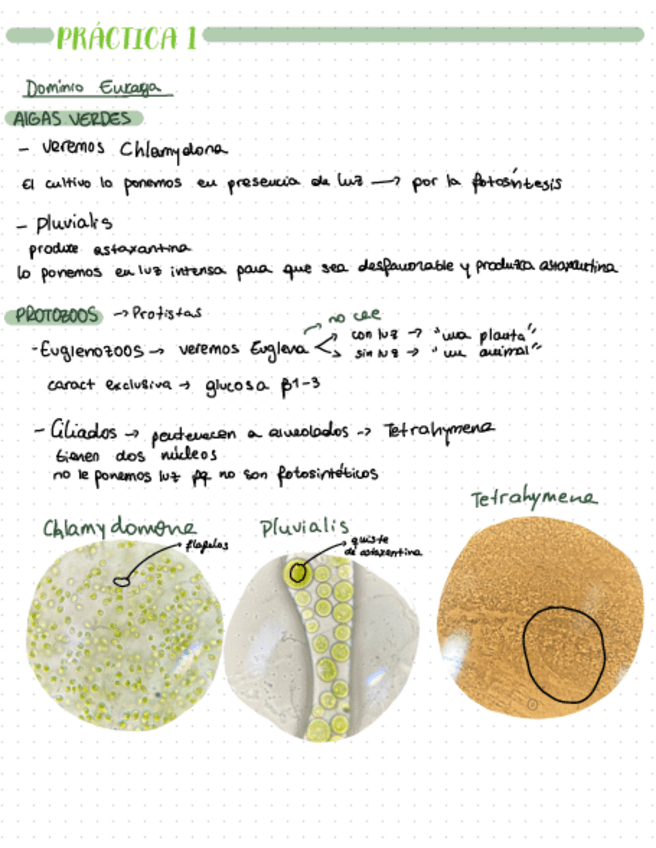 PRÁCTICA 1
Dominio Eukarya
AlGAS VERDES
- veremos Chlamydona
El cultivo lo ponemos en presencia de luz → por la fotosíntesis
- Pluvialis
produce astaxantina
lo ponemos en luz intensa para que sea desfavorable y produzca astaxantina
PROTOZOOS → Protistas
no cae
- Euglenozoos → veremos Euglena
con luz → "una planta"
sin luz → "un animal"
caract exclusiva → glucosa β1-3
- Ciliados → pertenecen a alveolados → Tetrahymena
tienen dos núcleos
no le ponemos luz pq no son fotosintéticos
Chlamydomona
flagelos
Pluvialis
quiste
de astaxantina
Tetrahymena